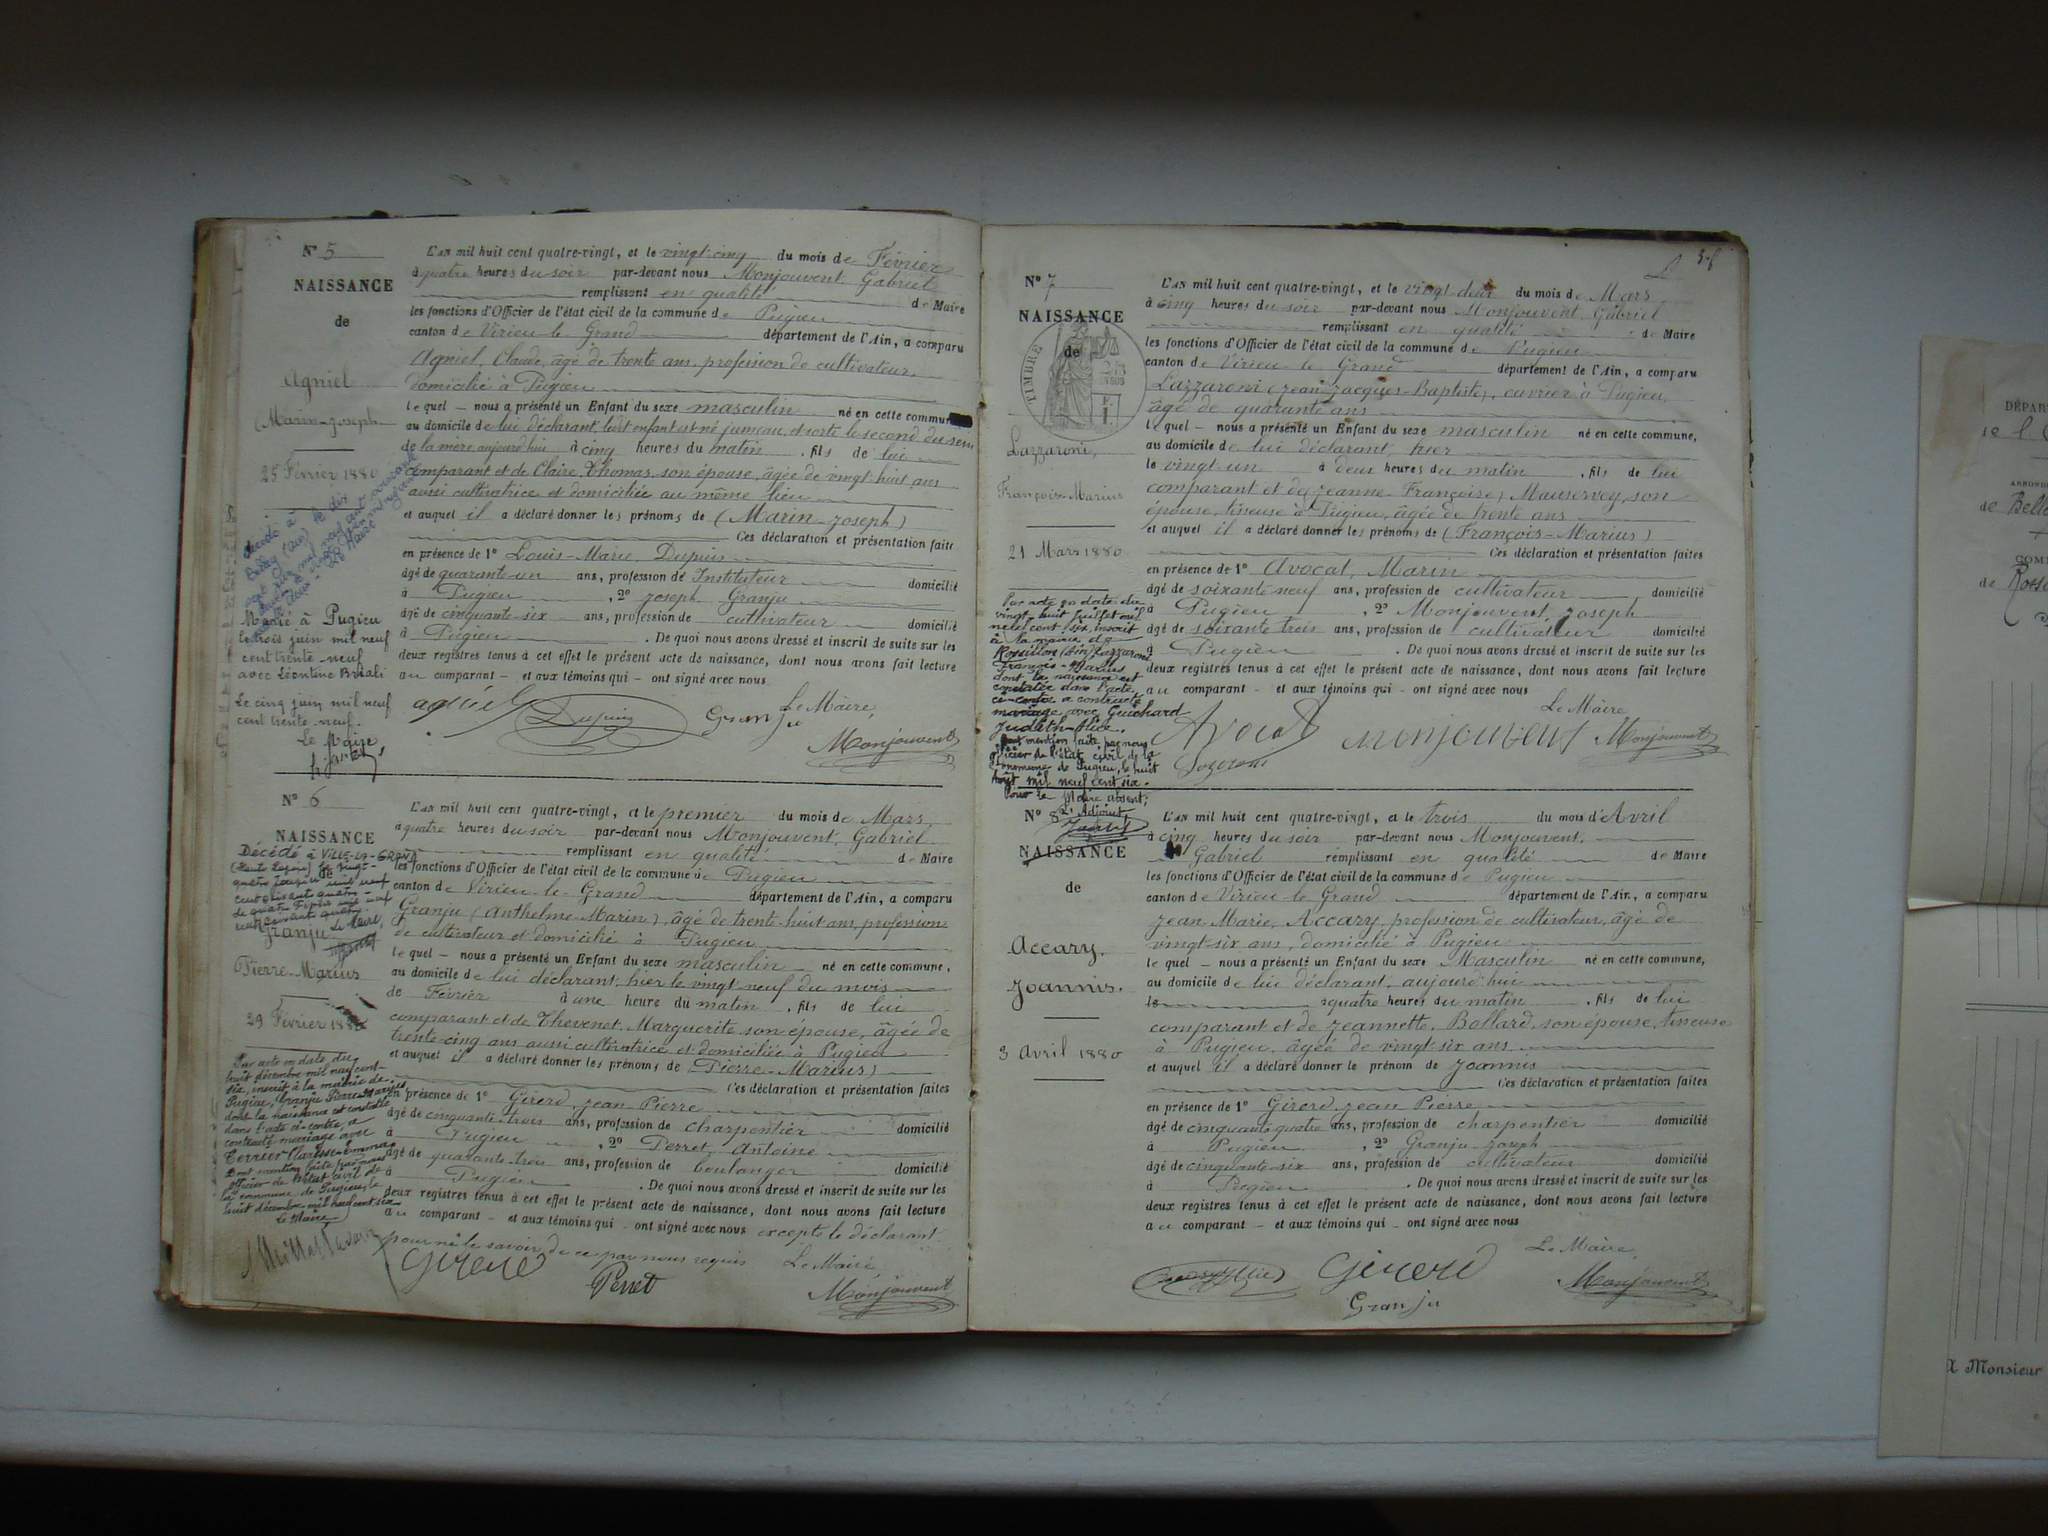 N° 5
NAISSANCE
de
Agniel
Marin-Joseph
25 Février 1880
Décédé à
Belley (Ain) le dix
Marié à Pugieu
le trois juin mil neuf
cent trente-neuf
avec Léontine
Le cinq juin mil neuf
cent trente-neuf.
Le Maire
L'AN mil huit cent quatre-vingt, et le vingt-cinq du mois de Février
à quatre heures du soir par-devant nous Monjouvent, Gabriel
remplissant en qualité de Maire
les fonctions d'Officier de l'état civil de la commune de Pugieu
canton de Virieu le Grand département de l'Ain, a comparu
Agniel, Claude, âgé de trente ans, profession de cultivateur
domicilié à Pugieu
lequel – nous a présenté un Enfant du sexe masculin né en cette commune
au domicile de lui déclarant, ledit enfant est né jumeau, et sorte le second du sein
de la mère, aujourd'hui à cinq heures du matin, fils de lui
comparant et de Claire Thomas, son épouse, âgée de vingt-huit ans
aussi cultivatrice et domiciliée au même lieu
et auquel il a déclaré donner les prénoms de (Marin-Joseph)
Ces déclaration et présentation faites
en présence de 1° Louis-Marie Dupuis
âgé de quarante-un ans, profession de Instituteur domicilié
à Pugieu, 2° Joseph Granju
âgé de cinquante-six ans, profession de cultivateur domicilié
à Pugieu. De quoi nous avons dressé et inscrit de suite sur les
deux registres tenus à cet effet le présent acte de naissance, dont nous avons fait lecture
au comparant – et aux témoins qui – ont signé avec nous
Le Maire,
agniel Dupuis Granju
Monjouvent
N° 6
NAISSANCE
de
Décédé à VILLE-LA-GRAND
(Haute Savoie) le vingt-
quatre janvier mil neuf
cent soixante quatre
Le Maire,
Granju
Pierre-Marius
29 Février 1880
Par acte en date du
huit décembre mil neuf cent-
six, inscrit à la mairie de
Pugieu, Granju Pierre-Marius
dont la naissance est constatée
dans l'acte ci-contre, a
contracté mariage avec
Terrier Clarisse-Emma
Dont mention faite par nous
officier de l'état civil de
la commune de Pugieu, le
huit décembre mil neuf cent six
Le Maire
L'AN mil huit cent quatre-vingt, et le premier du mois de Mars
à quatre heures du soir par-devant nous Monjouvent, Gabriel
remplissant en qualité de Maire
les fonctions d'Officier de l'état civil de la commune de Pugieu
canton de Virieu-le-Grand département de l'Ain, a comparu
Granju (Anthelme-Marin), âgé de trente-huit ans, profession
de cultivateur et domicilié à Pugieu
lequel – nous a présenté un Enfant du sexe masculin – né en cette commune,
au domicile de lui déclarant, hier le vingt neuf du mois
de Février à une heure du matin, fils de lui
comparant et de Thevenet, Marguerite son épouse, âgée de
trente-cinq ans aussi cultivatrice et domiciliée à Pugieu
et auquel il a déclaré donner les prénoms de (Pierre-Marius)
Ces déclaration et présentation faites
en présence de 1° Girerd, Jean Pierre
âgé de cinquante-trois ans, profession de charpentier domicilié
à Pugieu, 2° Perret, Antoine
âgé de quarante-trois ans, profession de boulanger domicilié
à Pugieu. De quoi nous avons dressé et inscrit de suite sur les
deux registres tenus à cet effet le présent acte de naissance, dont nous avons fait lecture
au comparant – et aux témoins qui – ont signé avec nous excepté le déclarant
pour ne le savoir de ce par nous requis Le Maire
Girerd Perret Monjouvent
N° 7
NAISSANCE
de
TIMBRE
Lazzaroni,
François-Marius
21 Mars 1880
Par acte en date du
vingt-huit juillet mil
neuf cent six, inscrit
à la mairie de
Rossillon (Ain) Lazzaroni
François-Marius
dont la naissance est
constatée dans l'acte
ci-contre a contracté
mariage avec Guichard
Judith-Alice.
Dont mention faite par nous
officier de l'état civil de la
commune de Pugieu, le huit
août mil neuf cent six.
Pour le Maire absent,
L'Adjoint,
L'AN mil huit cent quatre-vingt, et le vingt-deux du mois de Mars
à cinq heures du soir par-devant nous Monjouvent, Gabriel
remplissant en qualité de Maire
les fonctions d'Officier de l'état civil de la commune de Pugieu
canton de Virieu le Grand département de l'Ain, a comparu
Lazzaroni (Jean-Jacques-Baptiste), ouvrier à Pugieu,
âgé de quarante ans
lequel – nous a présenté un Enfant du sexe masculin né en cette commune,
au domicile de lui déclarant, hier
le vingt-un à deux heures du matin, fils de lui
comparant et de (Jeanne-Françoise) son
épouse, tisseuse à Pugieu, âgée de trente ans
et auquel il a déclaré donner les prénoms de (François-Marius)
Ces déclaration et présentation faites
en présence de 1° Avocat, Marin
âgé de soixante-neuf ans, profession de cultivateur domicilié
à Pugieu, 2° Monjouvent, Joseph
âgé de soixante trois ans, profession de cultivateur domicilié
à Pugieu. De quoi nous avons dressé et inscrit de suite sur les
deux registres tenus à cet effet le présent acte de naissance, dont nous avons fait lecture
au comparant – et aux témoins qui – ont signé avec nous
Le Maire
Avocat monjouvent Monjouvent
N° 8
NAISSANCE
de
Accary.
Joannis.
3 Avril 1880
L'AN mil huit cent quatre-vingt, et le trois du mois d'Avril
à cinq heures du soir par-devant nous Monjouvent,
Gabriel remplissant en qualité de Maire
les fonctions d'Officier de l'état civil de la commune de Pugieu
canton de Virieu le Grand département de l'Ain, a comparu
Jean Marie, Accary, profession de cultivateur, âgé de
vingt-six ans, domicilié à Pugieu
lequel – nous a présenté un Enfant du sexe Masculin né en cette commune,
au domicile de lui déclarant, aujourd'hui
le à quatre heures du matin, fils de lui
comparant et de Jeannette, Bollard, son épouse, tisseuse
à Pugieu, âgée de vingt-six ans
et auquel il a déclaré donner le prénom de Joannis
Ces déclaration et présentation faites
en présence de 1° Girerd, Jean Pierre
âgé de cinquante quatre ans, profession de charpentier domicilié
à Pugieu, 2° Granju Joseph
âgé de cinquante-six ans, profession de cultivateur domicilié
à Pugieu. De quoi nous avons dressé et inscrit de suite sur les
deux registres tenus à cet effet le présent acte de naissance, dont nous avons fait lecture
au comparant – et aux témoins qui – ont signé avec nous
Le Maire,
Girerd Monjouvent
Granju
DÉPAR
de l'
de Belle
COM
de Ross
A Monsieur